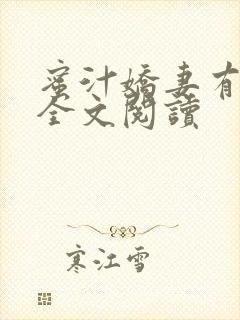 蜜汁嬌妻有
全文閱讀
寒江雪